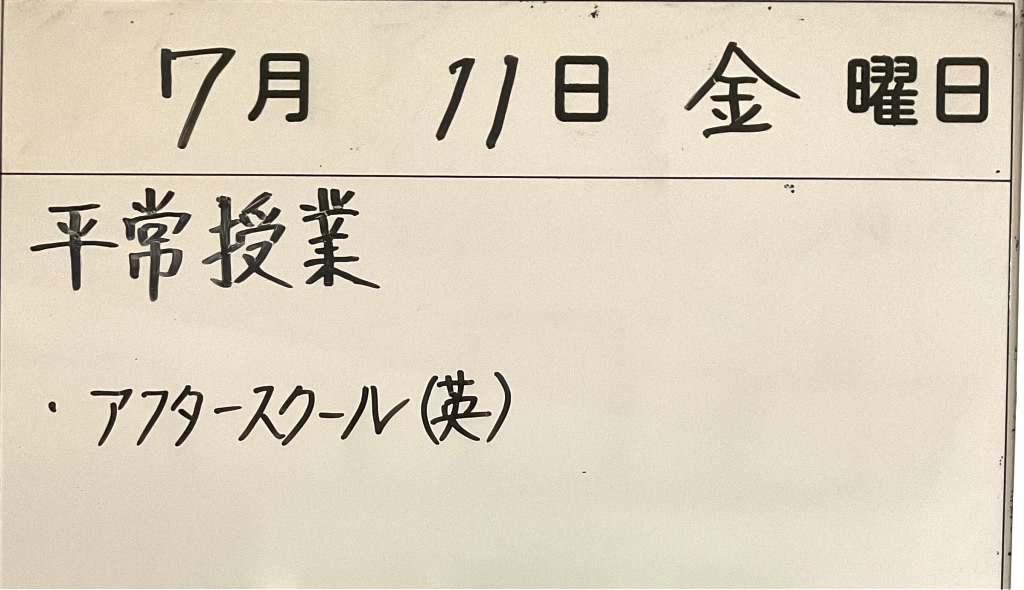 7月 11日 金曜日
平常授業
・アフタースクール(英)